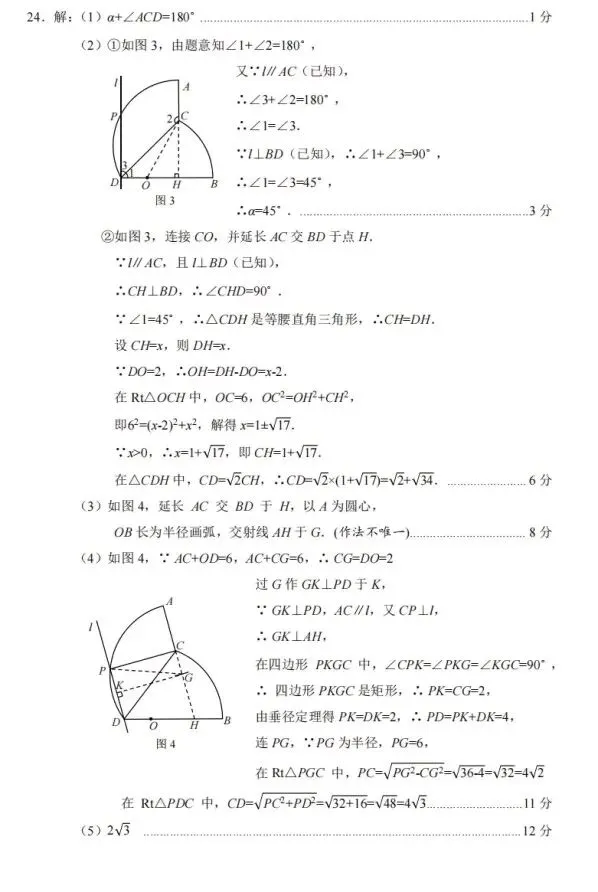 24．解：（1）α+∠ACD=180° ……1 分
（2）①如图 3，由题意知∠1+∠2=180°，
又∵l∥AC（已知），
∴∠3+∠2=180°，
∴∠1=∠3．
∵l⊥BD（已知），∴∠1+∠3=90°，
∴∠1=∠3=45°，
∴α=45°．……3 分
l
A
P
2
C
3
1
D
O
H
B
图 3
②如图 3，连接 CO，并延长 AC 交 BD 于点 H．
∵l∥AC，且 l⊥BD（已知），
∴CH⊥BD，∴∠CHD=90°．
∵∠1=45°，∴△CDH 是等腰直角三角形，∴CH=DH．
设 CH=x，则 DH=x．
∵DO=2，∴OH=DH-DO=x-2．
在 Rt△OCH 中，OC=6，OC²=OH²+CH²，
即6²=(x-2)²+x²，解得 x=1±√17．
∵x>0，∴x=1+√17，即 CH=1+√17．
在△CDH 中，CD=√2CH，∴CD=√2×(1+√17)=√2+√34．……6 分
（3）如图 4，延长 AC 交 BD 于 H，以 A 为圆心，
OB 长为半径画弧，交射线 AH 于 G．(作法不唯一)……8 分
（4）如图 4，∵ AC+OD=6，AC+CG=6，∴ CG=DO=2
过 G 作 GK⊥PD 于 K，
∵ GK⊥PD，AC∥l，又 CP⊥l，
∴ GK⊥AH，
在四边形 PKGC 中，∠CPK=∠PKG=∠KGC=90°，
∴ 四边形 PKGC 是矩形，∴ PK=CG=2，
由垂径定理得 PK=DK=2，∴ PD=PK+DK=4，
连 PG，∵PG 为半径，PG=6，
在 Rt△PGC 中，PC=√(PG²-CG²)=√(36-4)=√32=4√2
l
A
C
P
K
G
D
O
H
B
图 4
在 Rt△PDC 中，CD=√(PC²+PD²)=√(32+16)=√48=4√3……11 分
（5）2√3 ……12 分